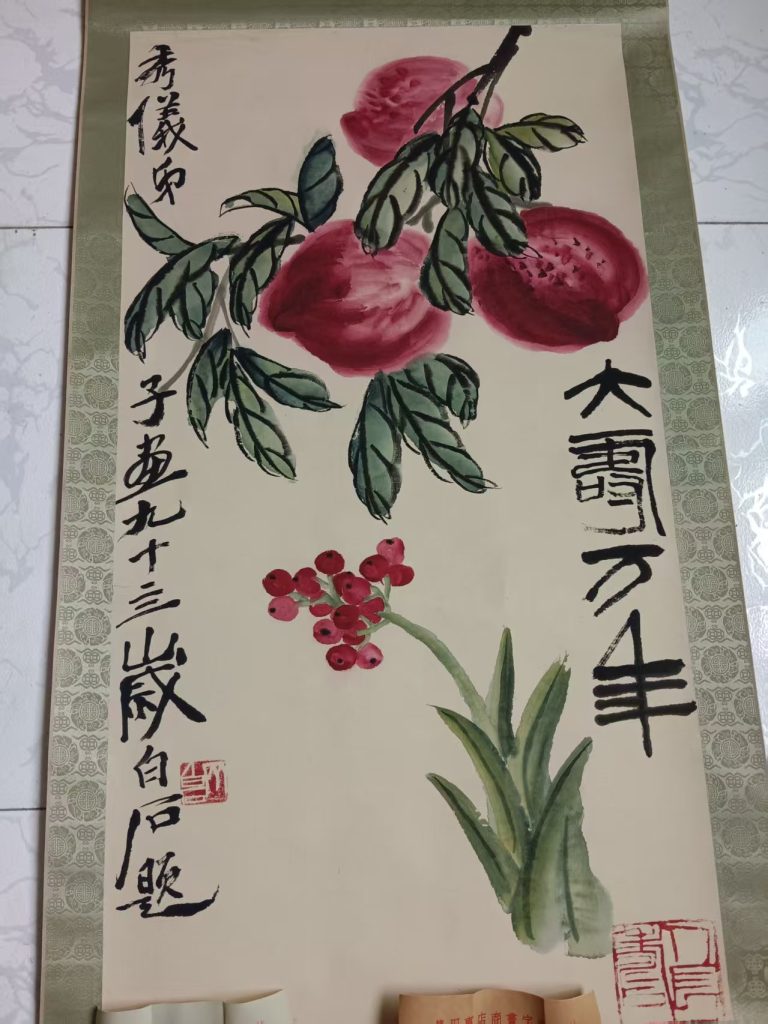 大壽万年
秀儀弟子畫九十三歲白石題
人長壽